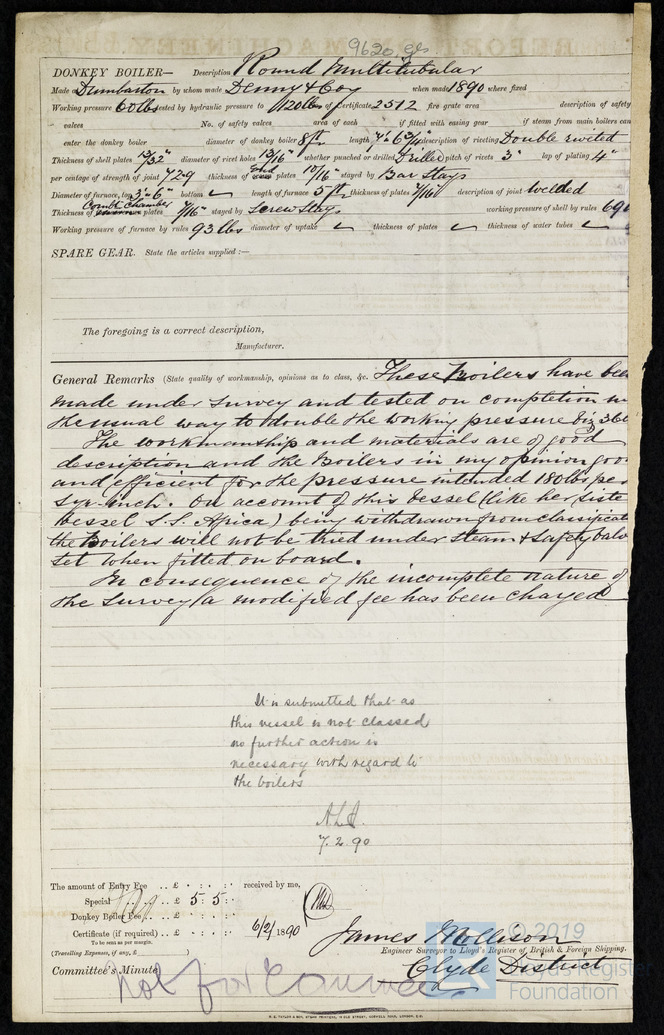 9620 gls
DONKEY BOILER— Description Round Multitubular
Made at Dumbarton by whom made Denny & Coy when made 1890 where fixed
Working pressure 60 lbs tested by hydraulic pressure to 120 lbs of Certificate 2512 fire grate area description of safety
valves No. of safety valves area of each if fitted with easing gear if steam from main boilers can
enter the donkey boiler diameter of donkey boiler 8 ft length 7'- 6 3/4" description of riveting Double rivited
Thickness of shell plates 13/32" diameter of rivet holes 13/16" whether punched or drilled Drilled pitch of rivets 3" lap of plating 4"
per centage of strength of joint 72.9 thickness of end plates 10/16" stayed by Bar Stays
Diameter of furnace, top 3'- 6" bottom length of furnace 5 ft thickness of plates 7/16" description of joint Welded
Combn Chamber
Thickness of furnace plates 7/16" stayed by Screw Stays working pressure of shell by rules 69
Working pressure of furnace by rules 93 lbs diameter of uptake thickness of plates thickness of water tubes
SPARE GEAR. State the articles supplied :—
The foregoing is a correct description,
Manufacturer.
General Remarks (State quality of workmanship, opinions as to class, &c. These Boilers have bee
made under survey and tested on completion in
the usual way to double the working pressure viz 360
The workmanship and materials are of good
description and the Boilers in my opinion good
and efficient for the pressure intended 180 lbs per
sqr. inch. On account of this vessel (like her siste
vessel S.S. Africa) being withdrawn from classificat
the Boilers will not be tried under steam & safety valv
set when fitted on board.
In consequence of the incomplete nature of
the survey a modified fee has been charged
It is submitted that as
this vessel is not classed
no further action is
necessary with regard to
the boilers
7.2.90
The amount of Entry Fee .. £ : : received by me,
Special .. £ 5 : 5 :
Donkey Boiler Fee .. £ : :
Certificate (if required) .. £ : : 6/2/1890
To be sent as per margin.
(Travelling Expenses, if any, £ )
James Mollison
Engineer Surveyor to Lloyd's Register of British & Foreign Shipping.
Committee's Minute
Clyde District
not for Committee
© 2019
Lloyd's Register
Foundation